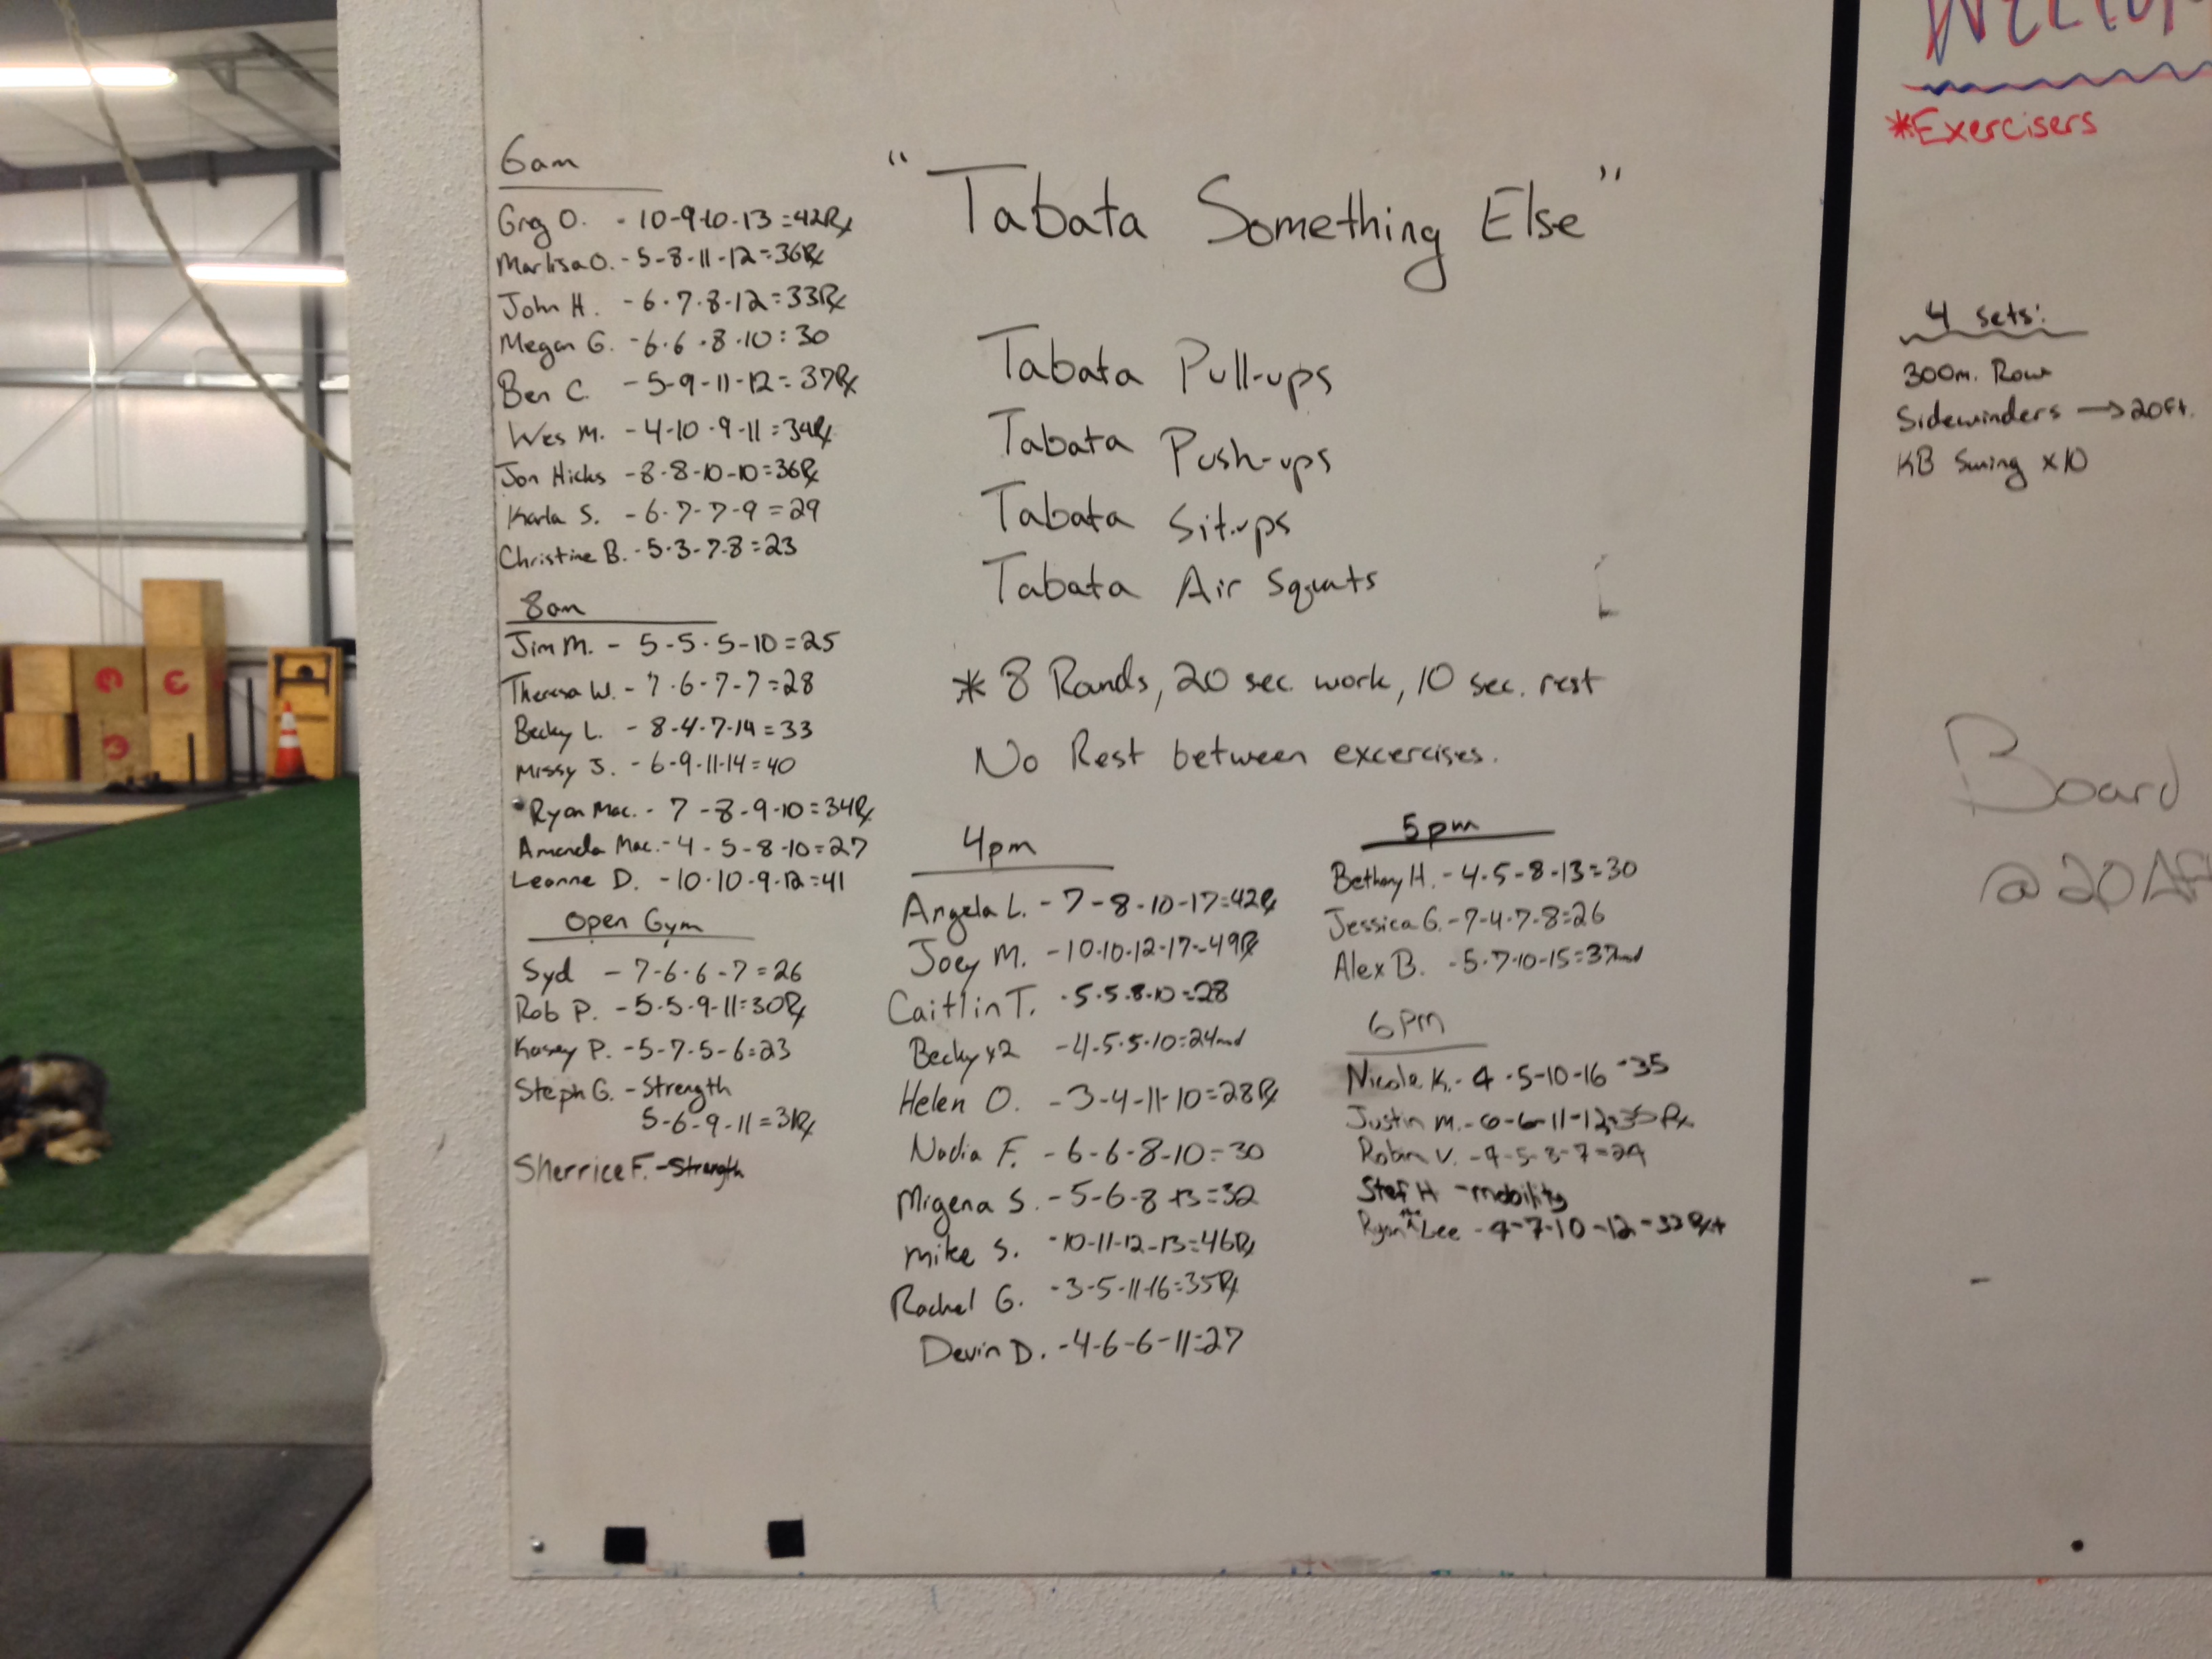 6am
Greg O. - 10-9-10-13 = 42Rx
Marlisa O. - 5-8-11-12 = 36Rx
John H. - 6-7-8-12 = 33Rx
Megan G. - 6-6-8-10 = 30
Ben C. - 5-9-11-12 = 37Rx
Wes M. - 4-10-9-11 = 34Rx
Jon Hicks - 8-8-10-10 = 36Rx
Karla S. - 6-7-7-9 = 29
Christine B. - 5-3-7-8 = 23
8am
Jim M. - 5-5-5-10 = 25
Theresa W. - 7-6-7-7 = 28
Becky L. - 8-4-7-14 = 33
Missy J. - 6-9-11-14 = 40
Ryan Mac. - 7-8-9-10 = 34Rx
Amanda Mac. - 4-5-8-10 = 27
Leanne D. - 10-10-9-12 = 41
Open Gym
Syd - 7-6-6-7 = 26
Rob P. - 5-5-9-11 = 30Rx
Kasey P. - 5-7-5-6 = 23
Steph G. - Strength
5-6-9-11 = 31Rx
Sherrice F. - Strength
"Tabata Something Else"
Tabata Pull-ups
Tabata Push-ups
Tabata Sit-ups
Tabata Air Squats
* 8 Rounds, 20 sec. work, 10 sec. rest
No Rest between excercises.
4pm
Angela L. - 7-8-10-17 = 42Rx
Joey M. - 10-10-12-17 - 49Rx
Caitlin T. - 5-5-8-10 = 28
Becky x2 - 4-5-5-10 = 24mod
Helen O. - 3-4-11-10 = 28Rx
Nadia F. - 6-6-8-10 = 30
Migena S. - 5-6-8-13 = 32
Mike S. - 10-11-12-13 = 46Rx
Rachel G. - 3-5-11-16 = 35Rx
Devin D. - 4-6-6-11 = 27
5pm
Bethany H. - 4-5-8-13 = 30
Jessica G. - 7-4-7-8 = 26
Alex B. - 5-7-10-15 = 37mod
6pm
Nicole K. - 4-5-10-16 - 35
Justin M. - 6-6-11-12 = 35 Rx
Robin V. - 4-5-8-7 = 24
Stef H - mobility
Ryan the Lee - 4-7-10-12 - 33 Rx+
*Exercisers
4 sets:
300m. Row
Sidewinders → 20ft.
KB Swing x10
Board
@ 20